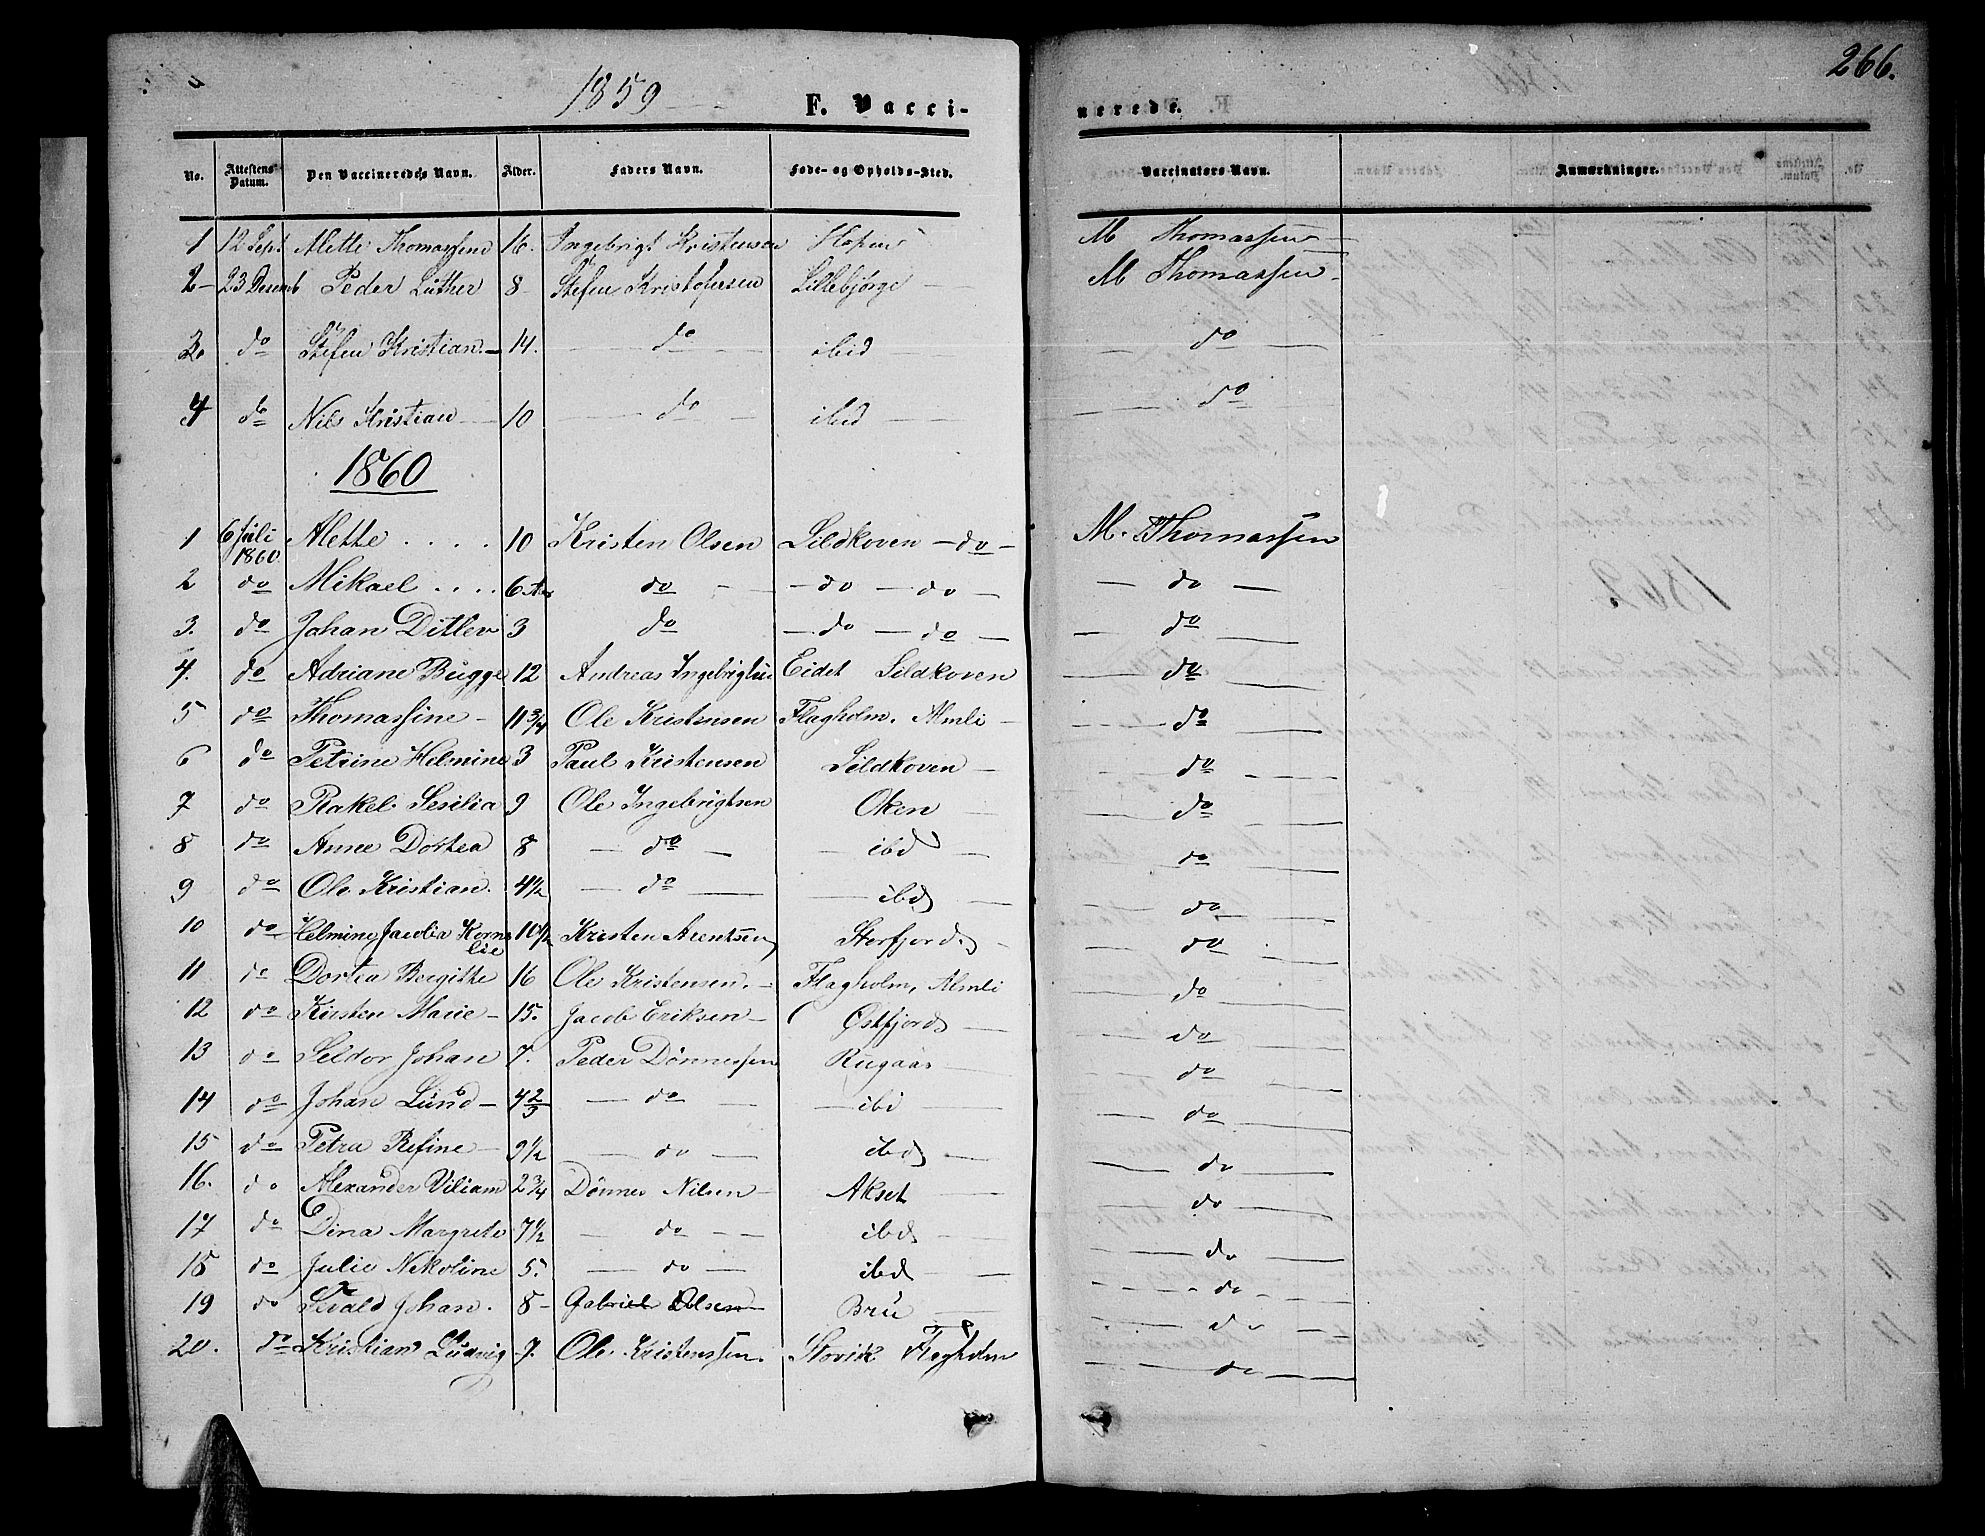 1859 F. Vacci-
nerede. 266.
No. Attestens Datum. Den Vaccineredes Navn. Alder. Faders Navn. Føde- og Opholds-Sted. Vaccinators Navn. Anmærkninger.
1 12 Sept Alette Thomassine 16. Ingebrigt Kristensen Hopen M Thomassen
2 23 Desemb Peder Luther 8 Stefen Kristofersen Lillebjørge M Thomassen
3. do Stefen Kristian 14. do ibid do
4 do Nils Kristian 10 do ibid do
1860
1 6 Juli 1860 Alette 10 Kristen Olsen Sildkoven do M. Thomassen
2 do Mikael 6 Aar do do do do
3. do Johan Ditlev 3 do do do do
4. do Adriane Bugge 12 Andreas Ingebrigtsen Eidet Sildkoven do
5 do Thomassine 11 3/4 Ole Kristensen Flagholm. Almli do
6 do Petrine Helmine 3 Paul Kristensen Sildkoven do
7 do Rakel Sesilia 9 Ole Ingebrigtsen Oken do
8 do Anne Dortea 8 do ibd do
9 do Ole Kristian. 4 1/2 do ibd do
10 do Helmine Jacobia Korne
lie 10 1/2 Kristen Arentsen Storfjord do
11 do Dortea Bergitte 16 Ole Kristensen. Flagholm, Almli do
12 do Kirsten Marie 15. Jacob Eriksen Østfjord do
13 do Seldor Johan 7. Peder Dønnessen Rugaas do
14 do Johan Lund 4 2/3 do ibi do
15 do Petra Refine 9 1/2 do ibd do
16. do Alexander Viliam 2 3/4 Dønnes Nilsen Akset do
17 do Dina Margrete 7 1/2 do ibd do
18 do Julie Nekoline 5. do ibd do
19 do Sevald Johan. 8 Gabriel Olsen Bru do
20. do Kristian Ludvig 7. Ole Kristenssen. Storvik Flagholm do